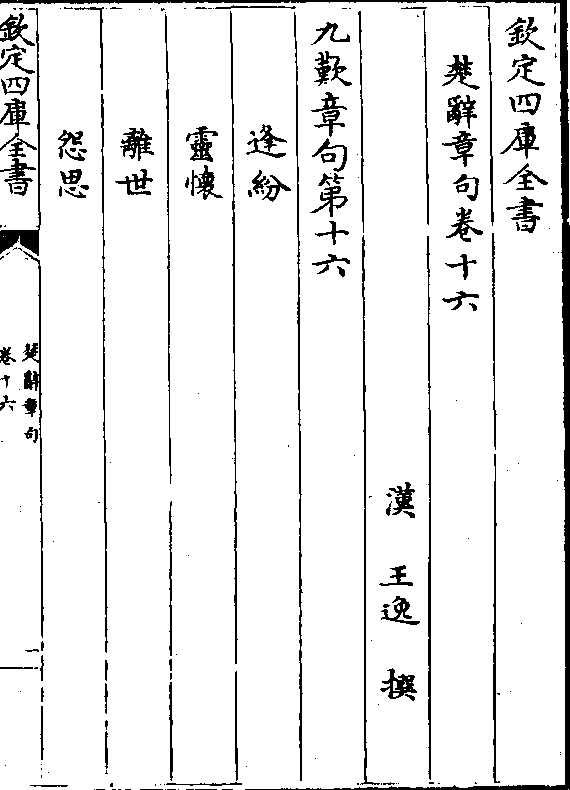 欽定四庫全書
楚辭章句卷十六
漢 王逸 撰
九歎章句第十六
逢紛
靈懷
離世
怨思
欽定四庫全書
楚辭章句
卷十六
一